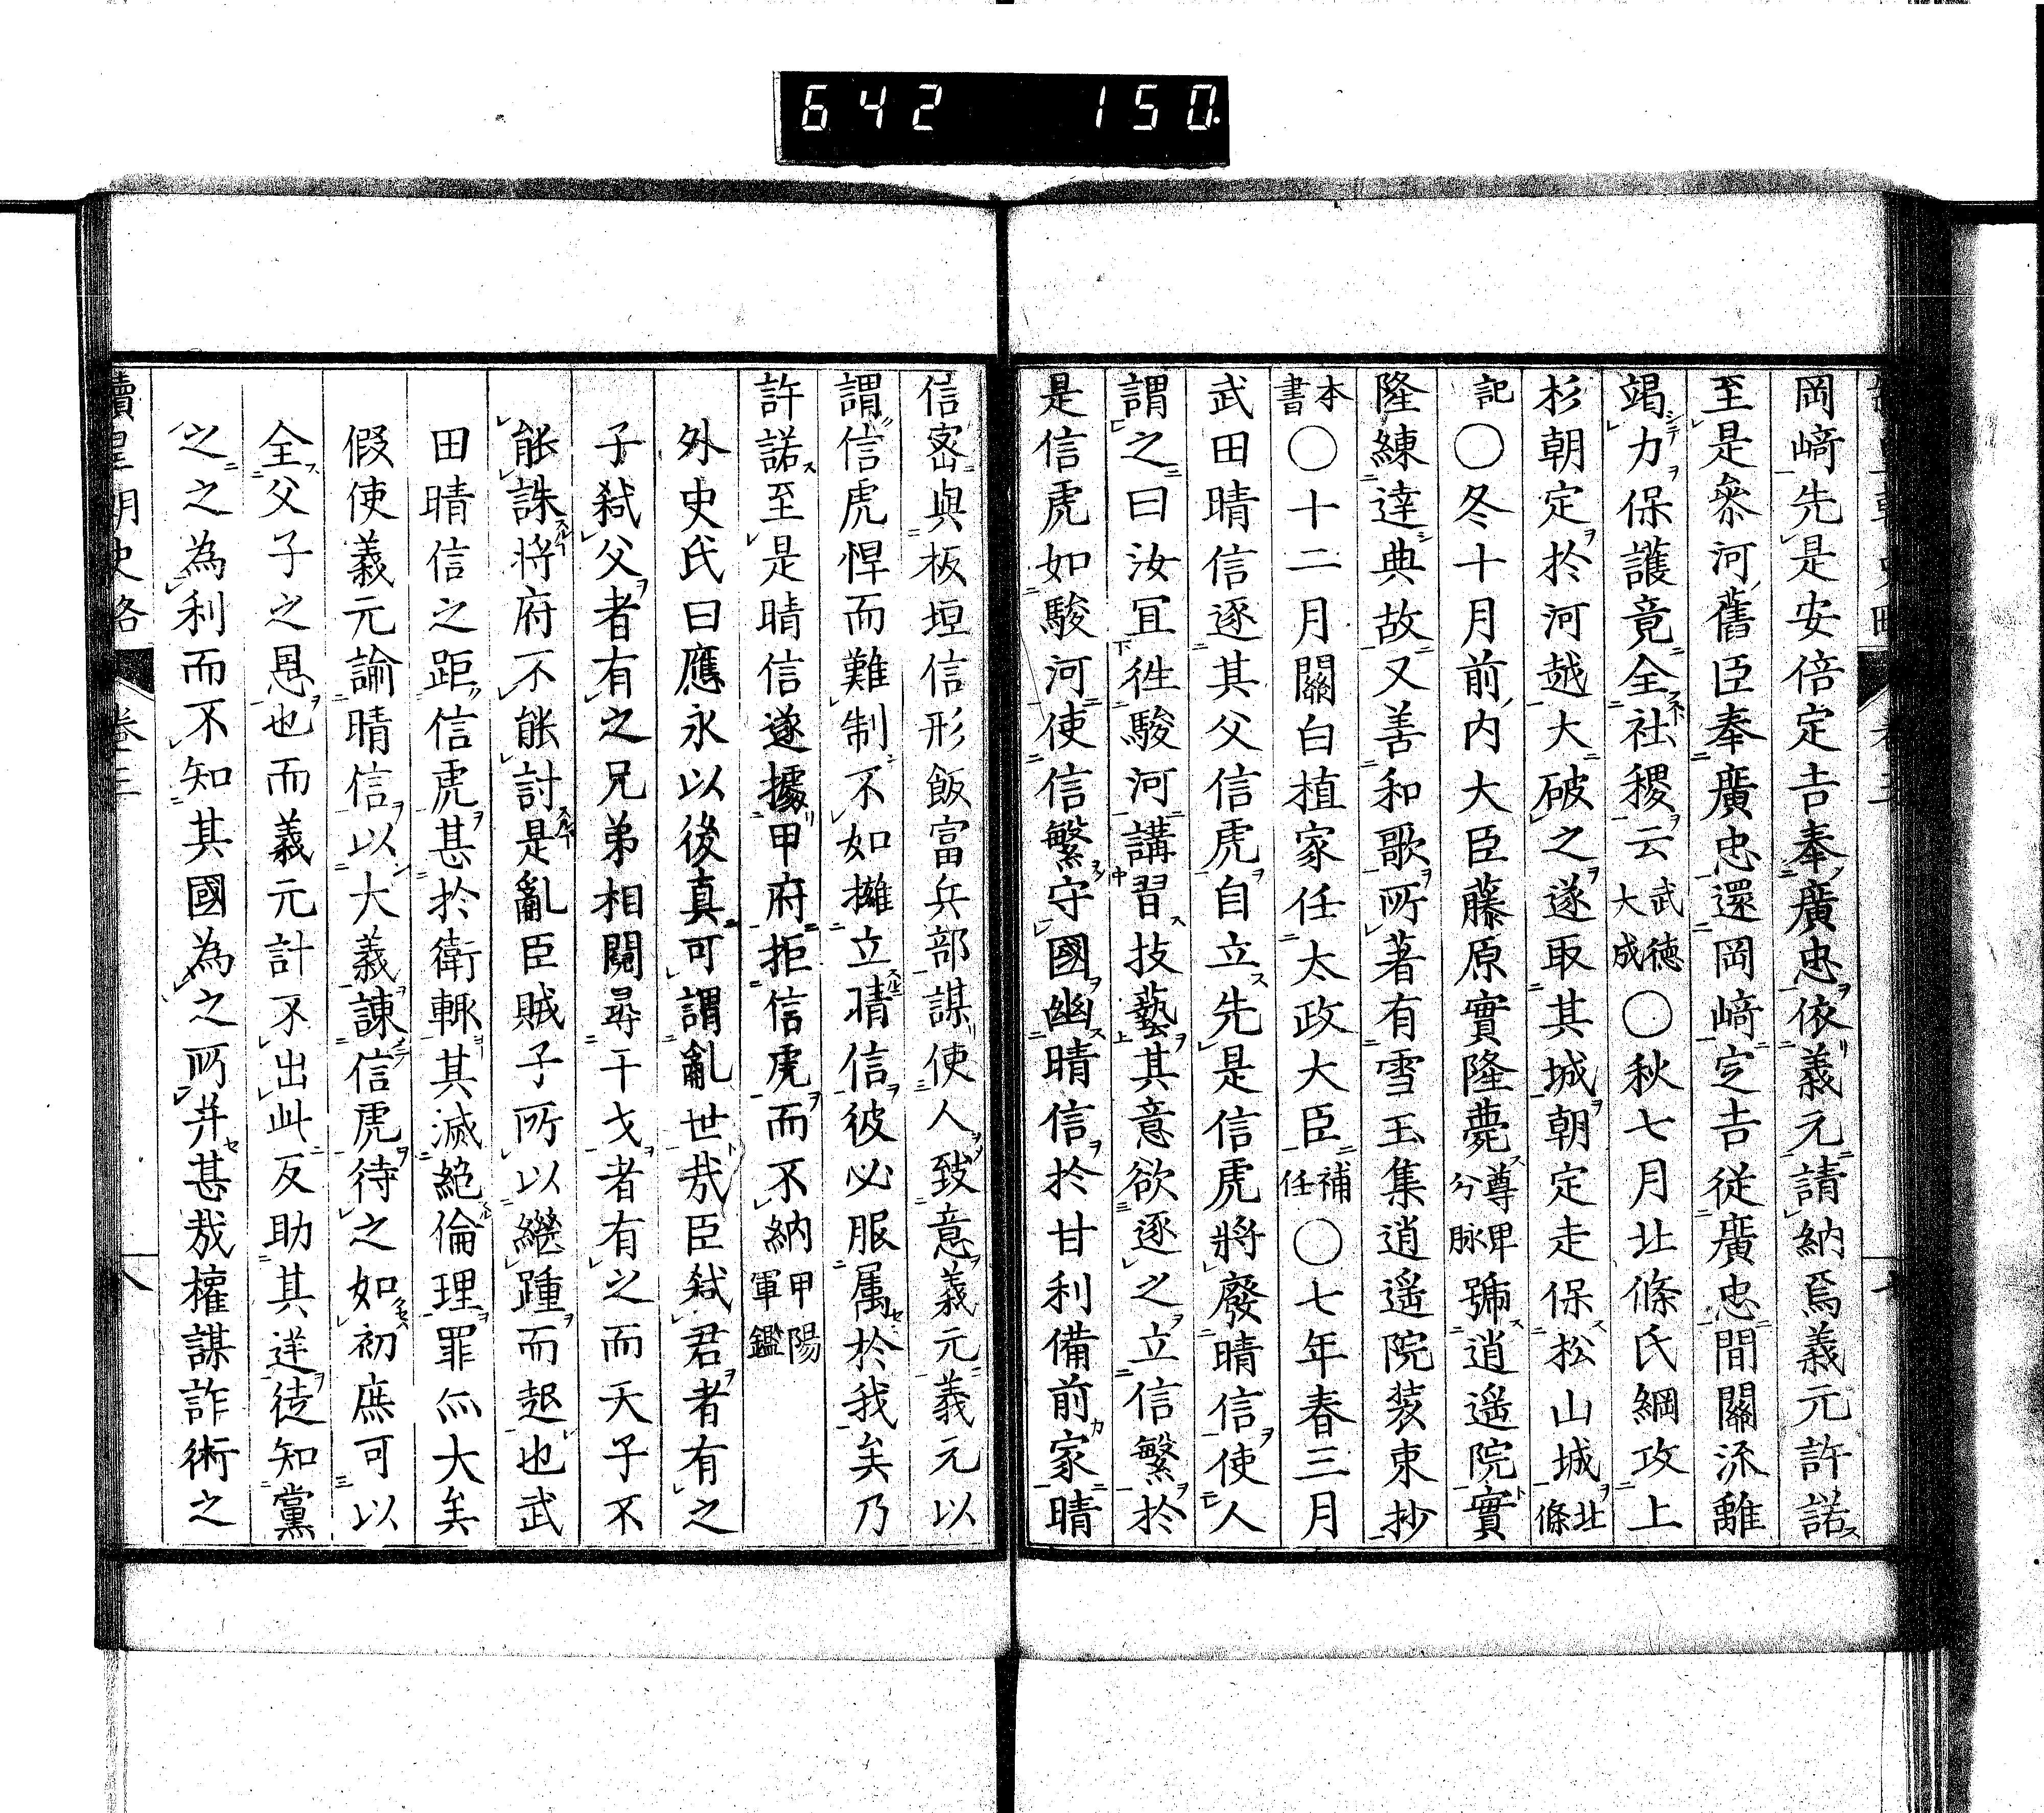 642 150.
岡﨑先是安倍定吉奉廣忠依義元請納焉義元許諾
至是參河舊臣奉廣忠還岡﨑定吉從廣忠間關流離
竭力保護竟全社稷云武德大成○秋七月北條氏綱攻上
杉朝定於河越大破之遂取其城朝定走保松山城北條
記○冬十月前內大臣藤原實隆薨尊卑分脉號逍遥院實
隆練達典故又善和歌所著有雪玉集逍遥院裝束抄
本書○十二月關白植家任太政大臣補任○七年春三月
武田晴信逐其父信虎自立先是信虎將廢晴信使人
謂之曰汝宜徃駿河講習技藝其意欲逐之立信繁於
是信虎如駿河使信繁守國幽晴信於甘利備前家晴
信密與板垣信形飯富兵部謀使人致意義元義元以
謂信虎悍而難制不如擁立晴信彼必服属於我矣乃
許諾至是晴信遂據甲府拒信虎而不納甲陽軍鑑
外史氏曰應永以後真可謂亂世哉臣弑君者有之
子弑父者有之兄弟相鬩尋干戈者有之而天子不
能誅將府不能討是亂臣賊子所以繼踵而起也武
田晴信之距信虎甚於衛輒其滅絶倫理罪亦大矣
假使義元諭晴信以大義諫信虎待之如初庶可以
全父子之恩也而義元計不出此反助其逆徒知黨
之之為利而不知其國為之所并甚哉權謀詐術之
續皇朝史略 卷三 八